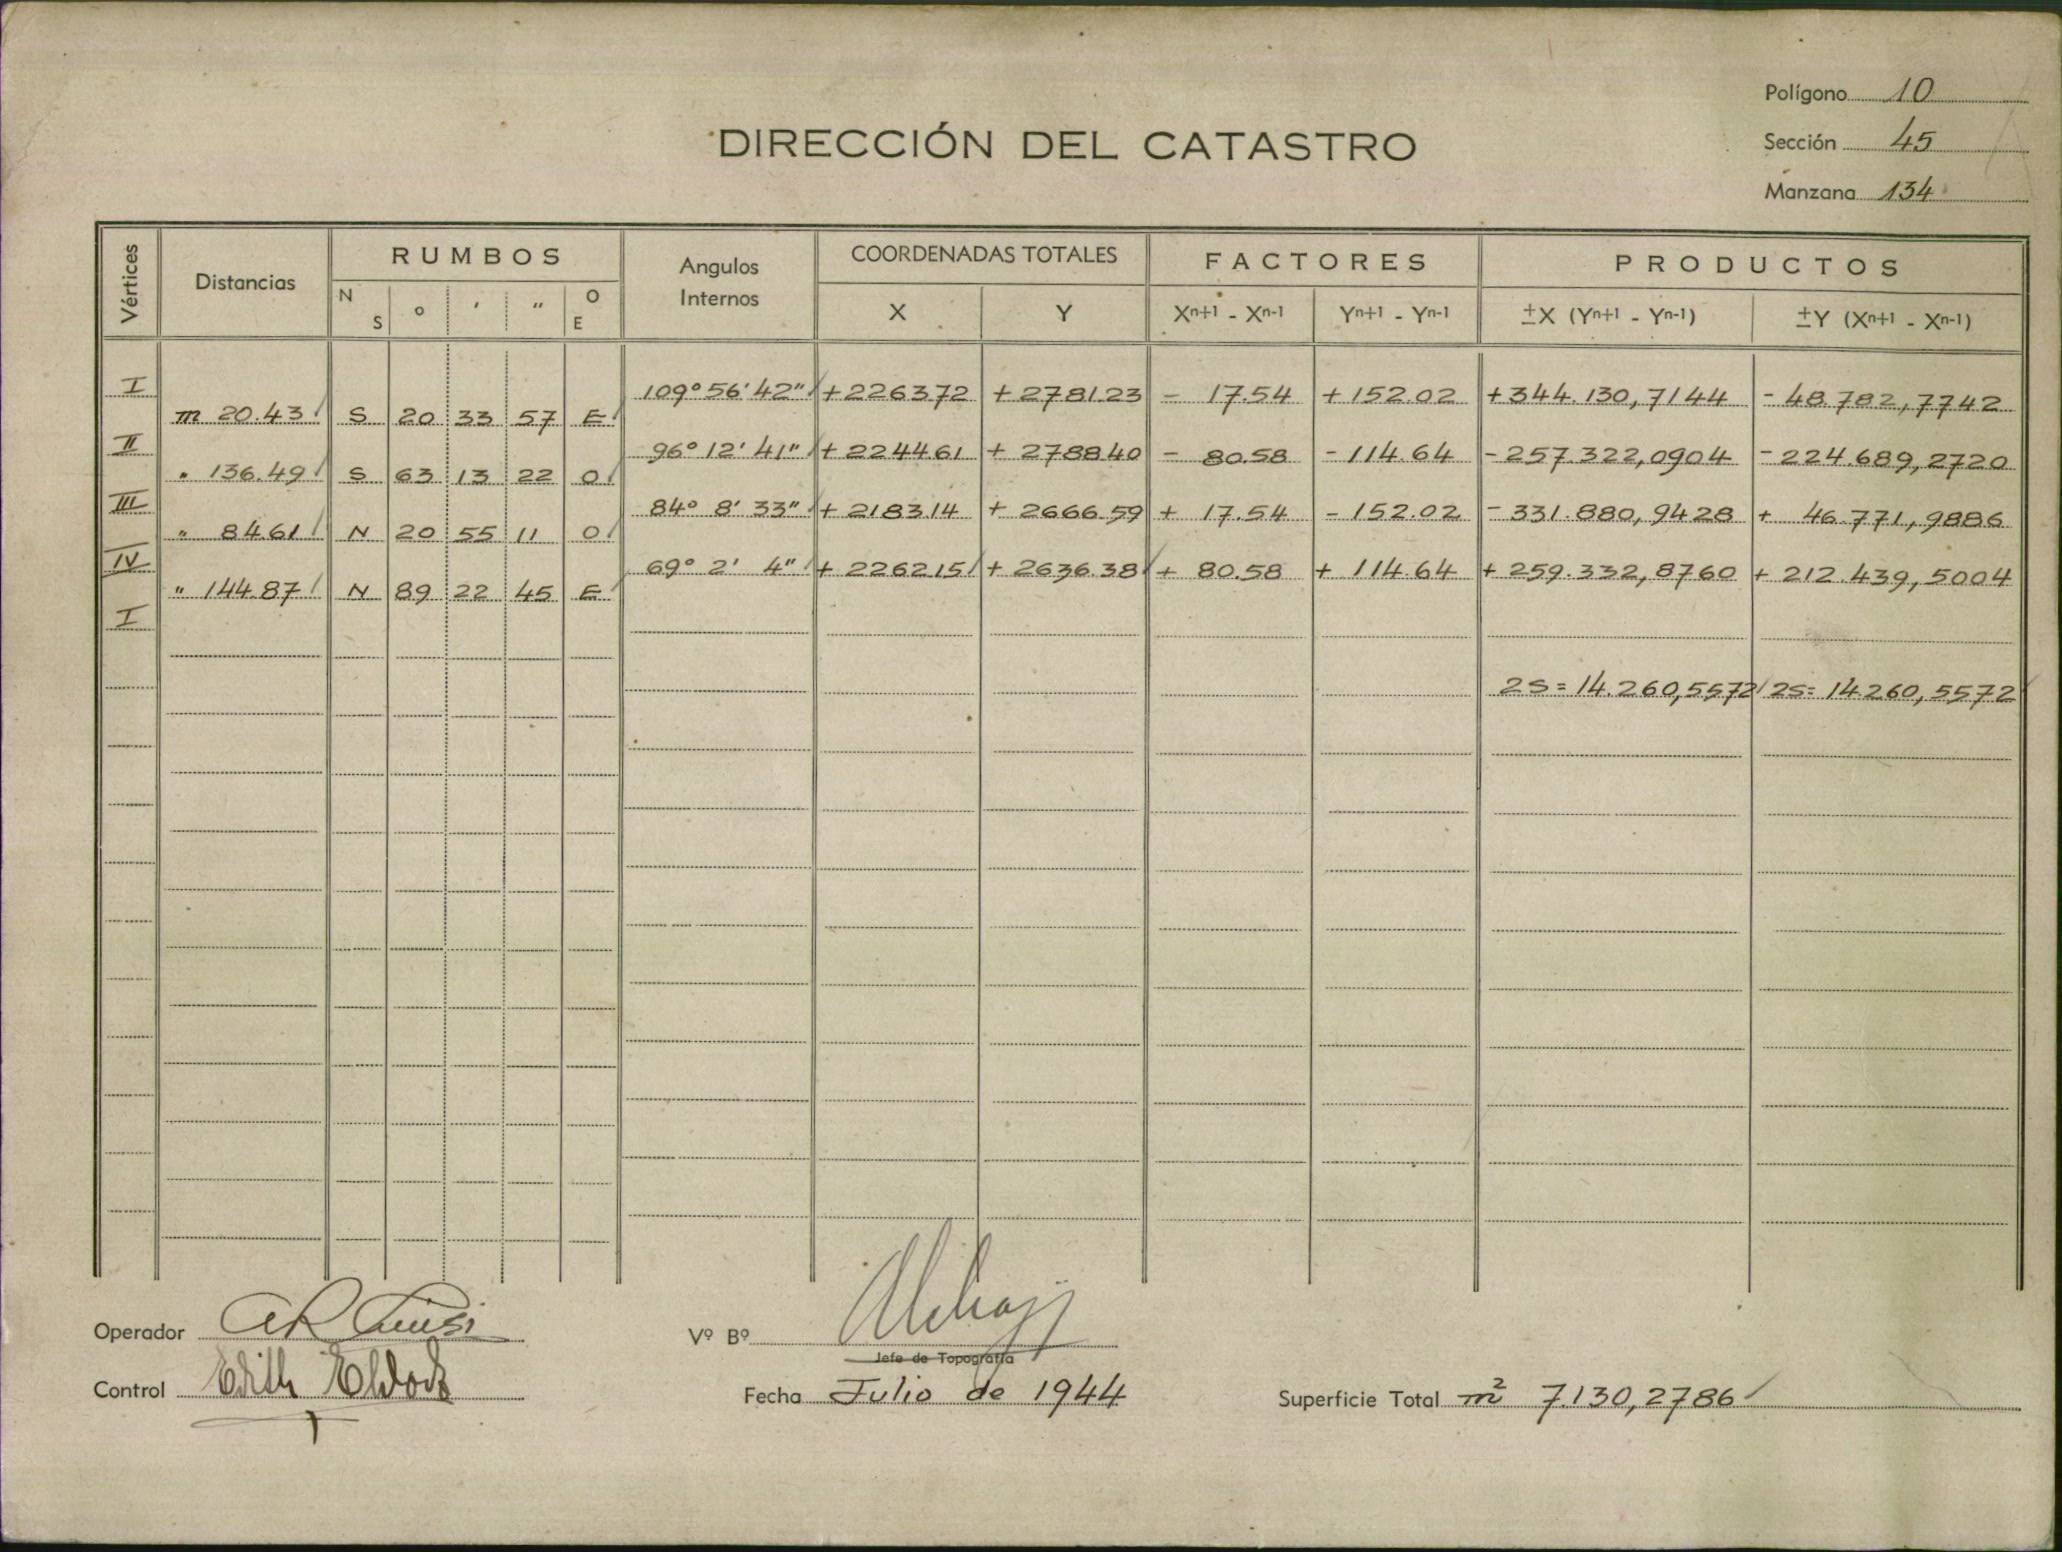 Polígono 10
DIRECCIÓN DEL CATASTRO
Sección 45
Manzana 134
Vértices
Distancias
RUMBOS
N S ° ' " O E
Angulos Internos
COORDENADAS TOTALES
X Y
FACTORES
Xn+1 - Xn-1 Yn+1 - Yn-1
PRODUCTOS
±X (Yn+1 - Yn-1) ±Y (Xn+1 - Xn-1)
I 109° 56' 42" +2263.72 +2781.23 - 17.54 +152.02 +344.130,7144 -48.782,7742
m 20.43 S 20 33 57 E
II 96° 12' 41" +2244.61 +2788.40 - 80.58 -114.64 -257.322,0904 -224.689,2720
" 136.49 S 63 13 22 O
III 84° 8' 33" +2183.14 +2666.59 + 17.54 -152.02 -331.880,9428 + 46.771,9886
" 84.61 N 20 55 11 O
IV 69° 2' 4" +2262.15 +2636.38 + 80.58 + 114.64 +259.332,8760 +212.439,5004
" 144.87 N 89 22 45 E
I
2S= 14.260,5572 2S= 14.260,5572
Operador
Vº Bº
Jefe de Topografía
Control Edith
Fecha Julio de 1944
Superficie Total m² 7.130,2786